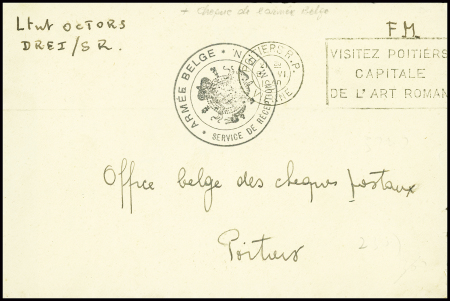 + cheques de l'armée belge
Ltnt OCTORS
DREI/SR.
FM
ARMÉE BELGE
SERVICE DE
POITIERS R.P.
VISITEZ POITIERS
CAPITALE
DE L'ART ROMAN
Office belge des cheques postaux
Poitiers